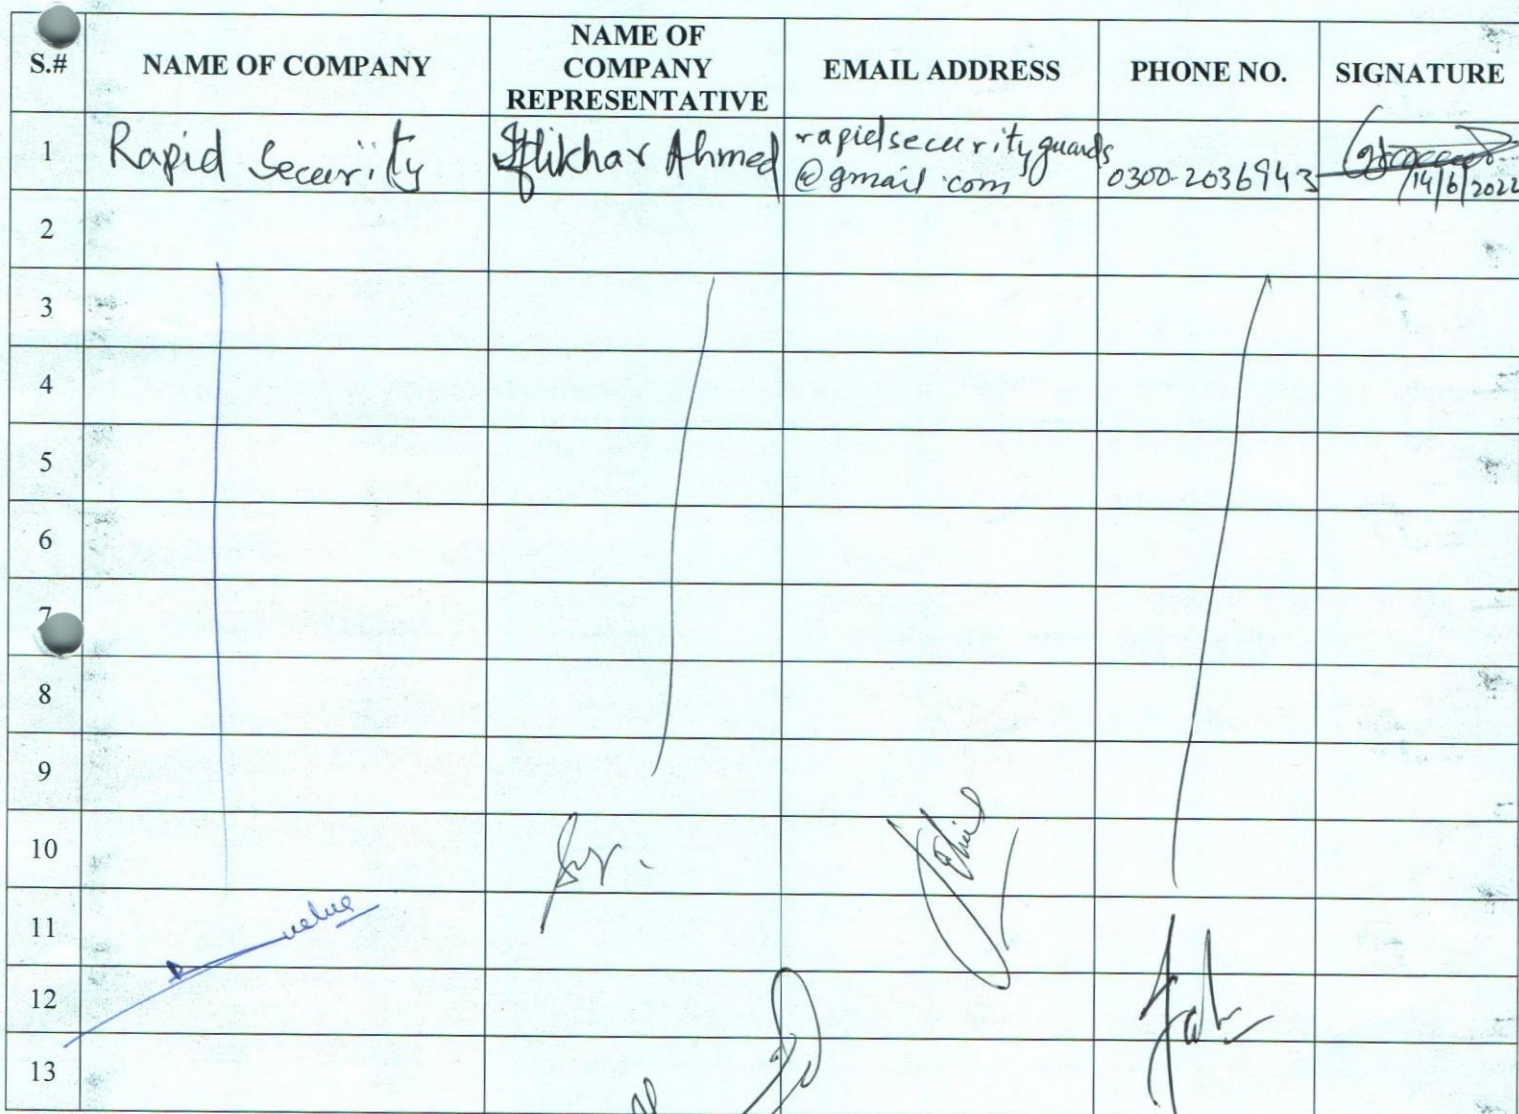 S.# NAME OF COMPANY NAME OF COMPANY REPRESENTATIVE EMAIL ADDRESS PHONE NO. SIGNATURE
1 Rapid Security Iftikhar Ahmed rapidsecurityguards @gmail.com 0300-2036943 14/6/2022
2
3
4
5
6
7
8
9
10
11
12
13